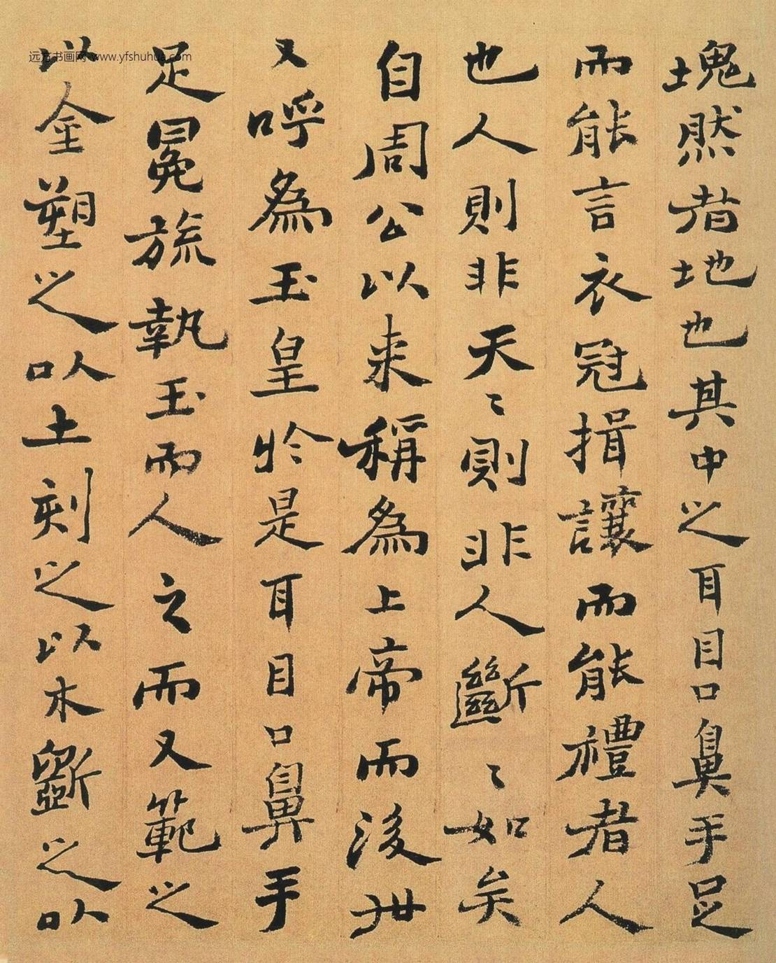 塊然者地也其中之耳目口鼻手足
而能言衣冠揖讓而能禮者人
也人則非天〻則非人斷〻如矣
自周公以来稱為上帝而後世
又呼為玉皇於是耳目口鼻手
足冕旒執玉而人之而又範之
以金塑之以土刻之以木斵之以
远方书画网 www.yfshuhua.com